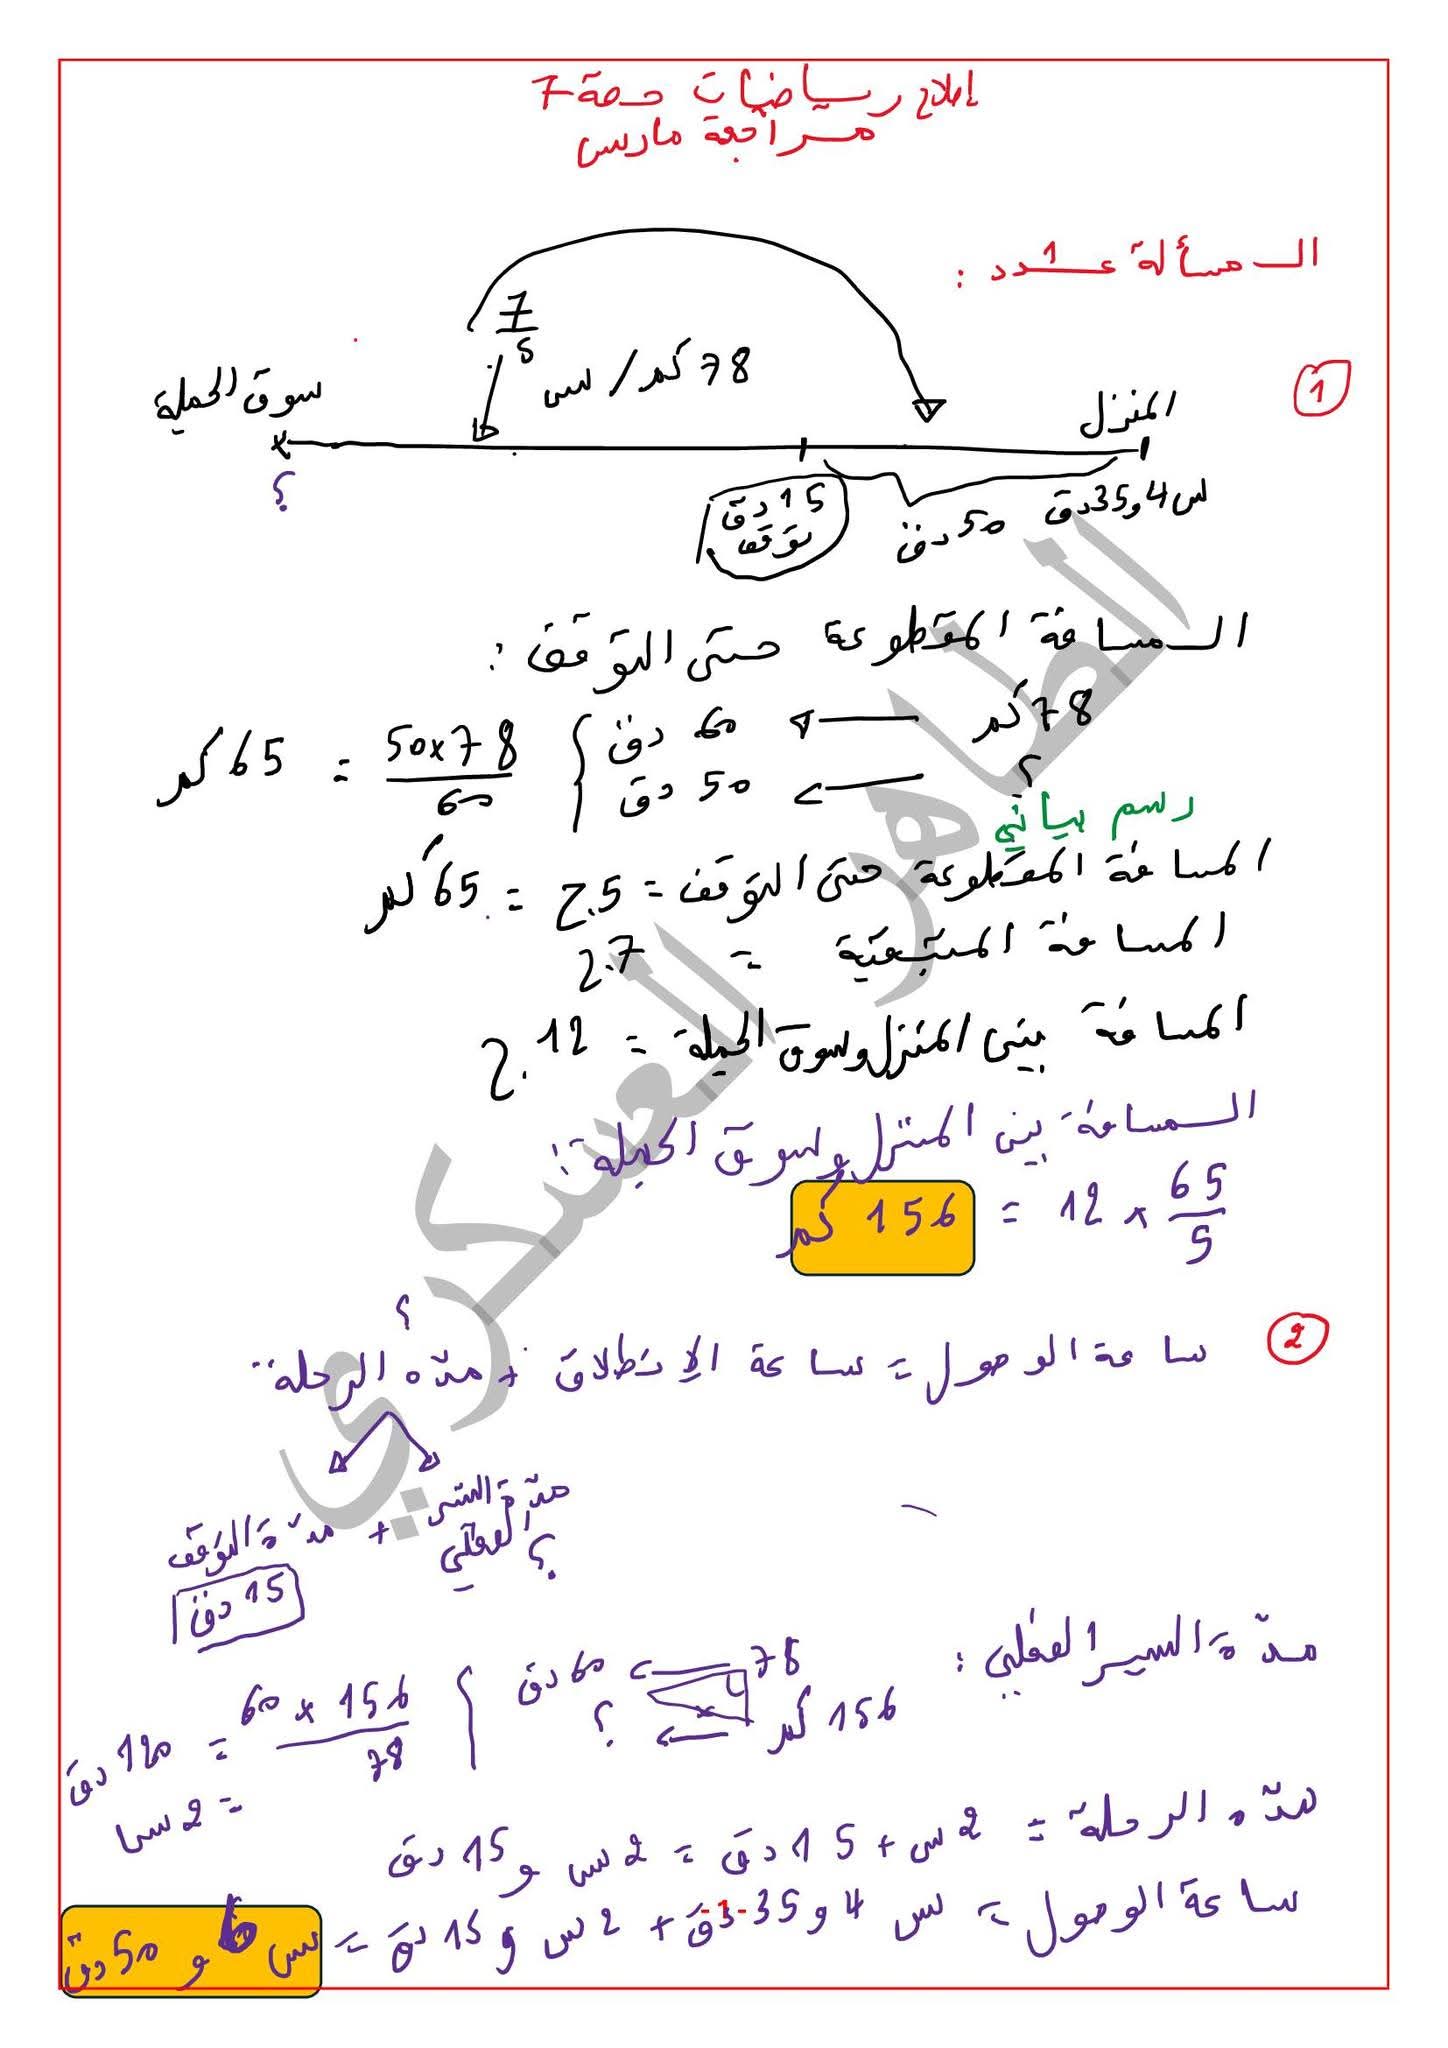 إصلاح رياضيات حصة 7
مراجعة مارس
المسألة عـ1ـدد :
1
7/5
78 كم/س
سوق الجملة
المنزل
؟
15 دق
توقف
50 دق
س 4 و 35 دق
المسافة المقطوعة حتى التوقف :
78 كم ← 60 دق
؟ ← 50 دق
50x78/60 = 65 كم
رسم بياني
المسافة المقطوعة حتى التوقف = 5.ج = 65 كم
المسافة المتبقية = 7.ج
المسافة بين المنزل وسوق الجملة = 12.ج
المسافة بين المنزل وسوق الجملة :
65/5 x 12 = 156 كم
2
ساعة الوصول = ساعة الإنطلاق + مدة الرحلة
؟
مدة السير الفعلي + مدة التوقف
؟
15 دق
مدة السير الفعلي :
78 ← 60 دق
156 كم ← ؟
60 x 156/78 = 120 دق
= 2 سا
مدة الرحلة = 2 س + 15 دق = 2 س و 15 دق
ساعة الوصول = س 4 و 35 دق + 2 س و 15 دق = س 6 و 50 دق
-1-
الطاهر العسكري